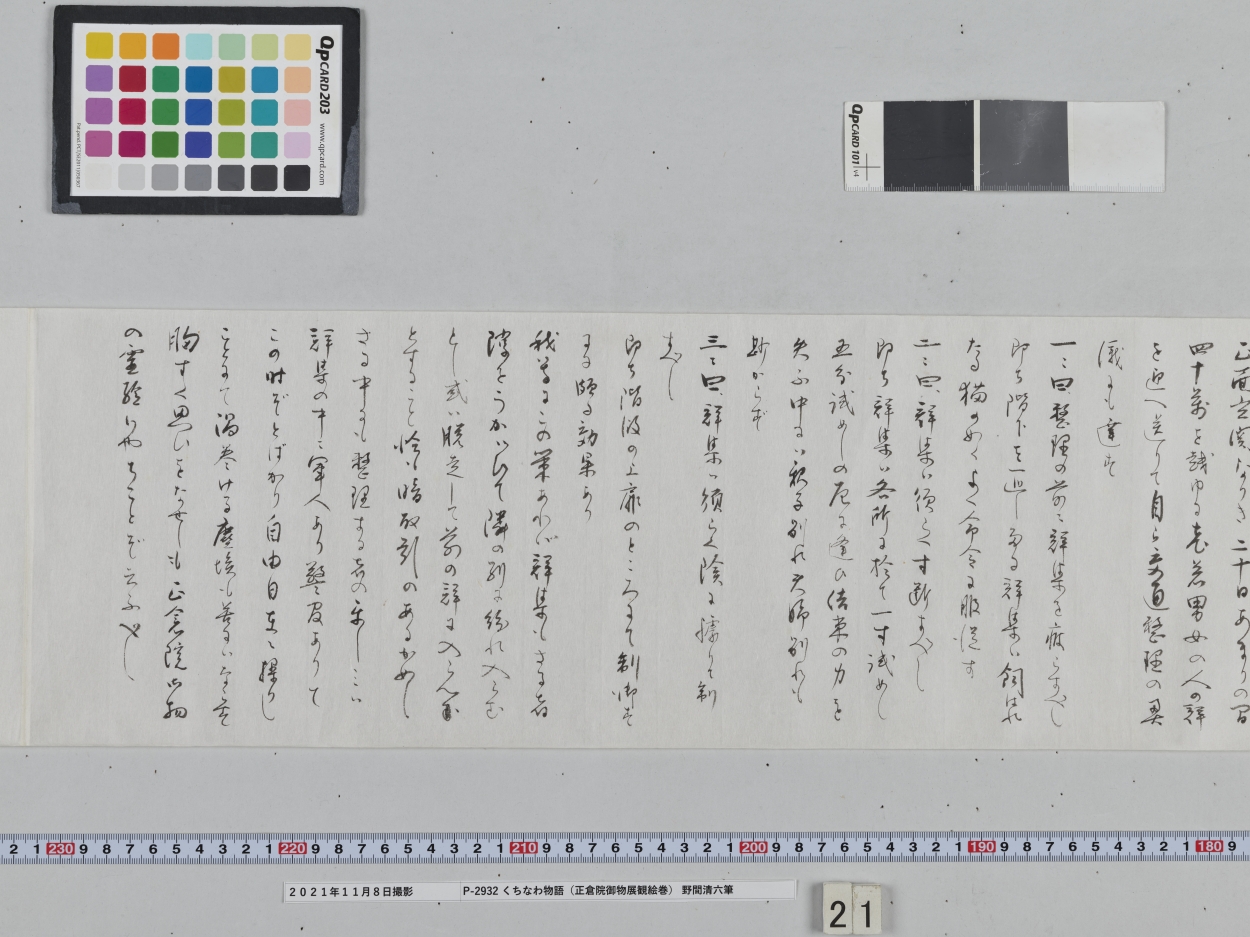 正面玄関なりき 二十日あまりの間
四十萬を越ゆる老若男女の人の群
を迎へ送りて自ら交通整理の奥
儀にも達す
一ニ曰、整理の前ニ群集を疲らすべし
即ち階下を 群集は飼はれ
たる猫の如くよく命令に服従す
二ニ曰、群集は須らく寸断すべし
即ち群集は各所に於て一寸試めし
五分試めしの厄に逢ひ結束の力を
失ふ中には親子別れ夫婦別れも
尠からず
三ニ曰、群集は須らく陰に據りて制
すべし
即ち階段の上扉のところにて制御す
るに頗る効果あり
我等にこの策あれば群集にもさる者
隙をうかがひて隣の列に紛れ入らむ
とし或は脱走して前の群に入らん
とすること 恰も暗取引のあるが如し
さる中にも整理する者の
群集の中ニ軍人あり警官ありて
この時ぞとばかり自由自在ニ操りし
ことにて渦巻ける塵埃も
胸すく思ひをなせしも正倉院御物
の霊験 ことぞと云ふべし
QPCARD 203
www.qpcard.com
QPCARD 101 v4
2 1 230 9 8 7 6 5 4 3 2 1 220 9 8 7 6 5 4 3 2 1 210 9 8 7 6 5 4 3 2 1 200 9 8 7 6 5 4 3 2 1 190 9 8 7 6 5 4 3 2 1 180 9
２０２１年１１月８日撮影 P-2932 くちなわ物語（正倉院御物展観絵巻） 野間清六筆
21